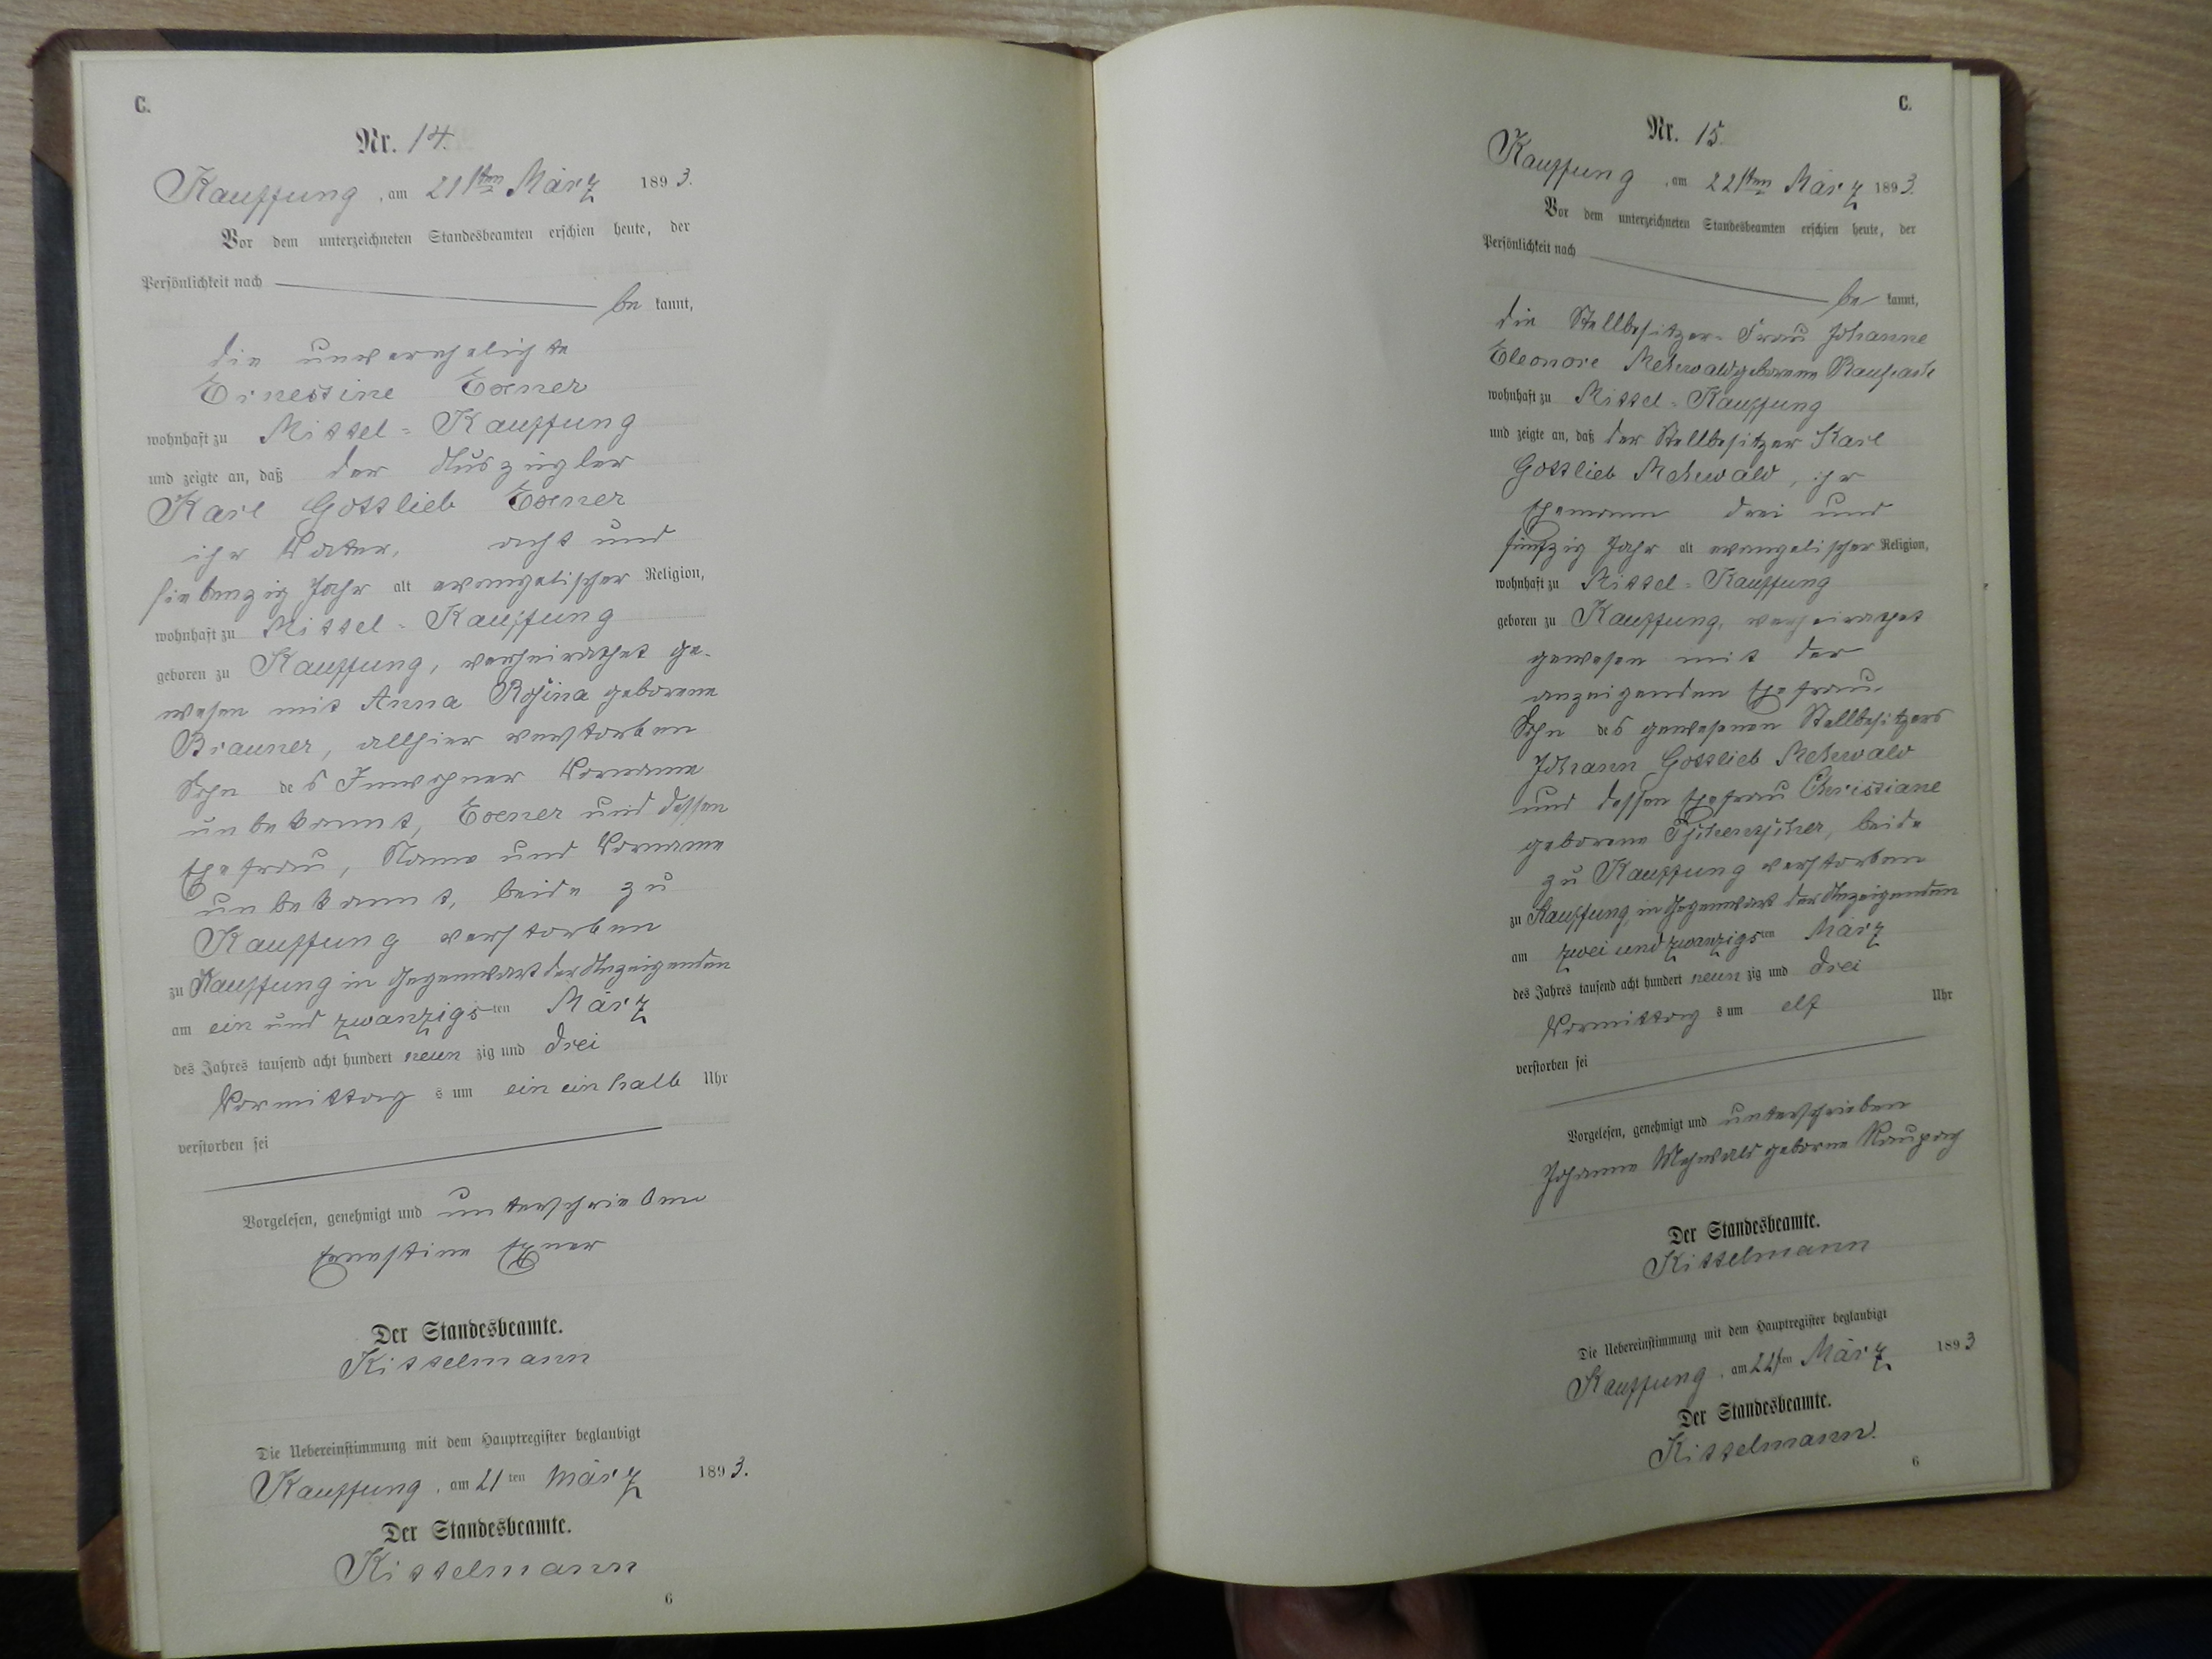 C.
Nr. 14.
Kauffung, am 21sten März 1893.
Vor dem unterzeichneten Standesbeamten erschien heute, der
Persönlichkeit nach
be kannt,
die unverehelichte
Ernestine Exner
wohnhaft zu Mittel-Kauffung
und zeigte an, daß der Auszügler
Karl Gottlieb Exner
ihr Vater, acht und
siebenzig Jahr alt evangelischer Religion,
wohnhaft zu Mittel-Kauffung
geboren zu Kauffung, verheirathet ge-
wesen mit Anna Rosina geborene
Brauner, allhier verstorben
Sohn des Inwohner Vorname
unbekannt, Exner und dessen
Ehefrau, Name und Vorname
unbekannt, beide zu
Kauffung verstorben
zu Kauffung in Gegenwart der Anzeigenden
am ein und zwanzigsten März
des Jahres tausend acht hundert neun zig und drei
Vormittag s um ein ein halb Uhr
verstorben sei
Vorgelesen, genehmigt und unterschrieben
Ernestine Exner
Der Standesbeamte.
Kittelmann
Die Uebereinstimmung mit dem Hauptregister beglaubigt
Kauffung, am 21ten März 1893.
Der Standesbeamte.
Kittelmann
6
C.
Nr. 15.
Kauffung, am 22sten März 1893.
Vor dem unterzeichneten Standesbeamten erschien heute, der
Persönlichkeit nach
be kannt,
die Stellbesitzer-Frau Johanne
Eleonore Mehwald geborene Raupach
wohnhaft zu Mittel-Kauffung
und zeigte an, daß der Stellbesitzer Karl
Gottlieb Mehwald, ihr
Ehemann drei und
fünfzig Jahr alt evangelischer Religion,
wohnhaft zu Mittel-Kauffung
geboren zu Kauffung, verheirathet
gewesen mit der
anzeigenden Ehefrau.
Sohn des gewesenen Stellbesitzers
Johann Gottlieb Mehwald
und dessen Ehefrau Christiane
geborene beide
zu Kauffung verstorben
zu Kauffung, in Gegenwart der Anzeigenden
am zwei und zwanzigsten März
des Jahres tausend acht hundert neun zig und drei
Vormittag s um elf Uhr
verstorben sei
Vorgelesen, genehmigt und unterschrieben
Johanne Mehwald geborne Raupach
Der Standesbeamte.
Kittelmann
Die Uebereinstimmung mit dem Hauptregister beglaubigt
Kauffung, am 22ten März 1893
Der Standesbeamte.
Kittelmann.
6